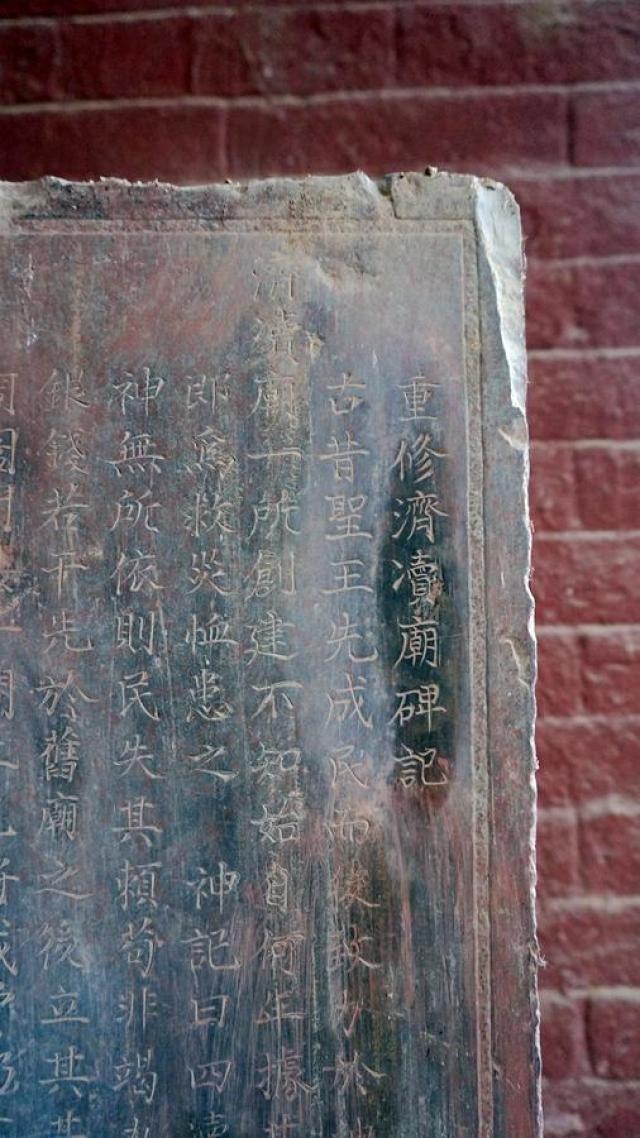 重修濟瀆廟碑記
古昔聖王先成民而後致力於
瀆廟一所創建不知始自何年據
郎爲救災恤患之 神記曰四瀆
神無所依則民失其賴苟非竭
銀錢若干先於舊廟之後立其